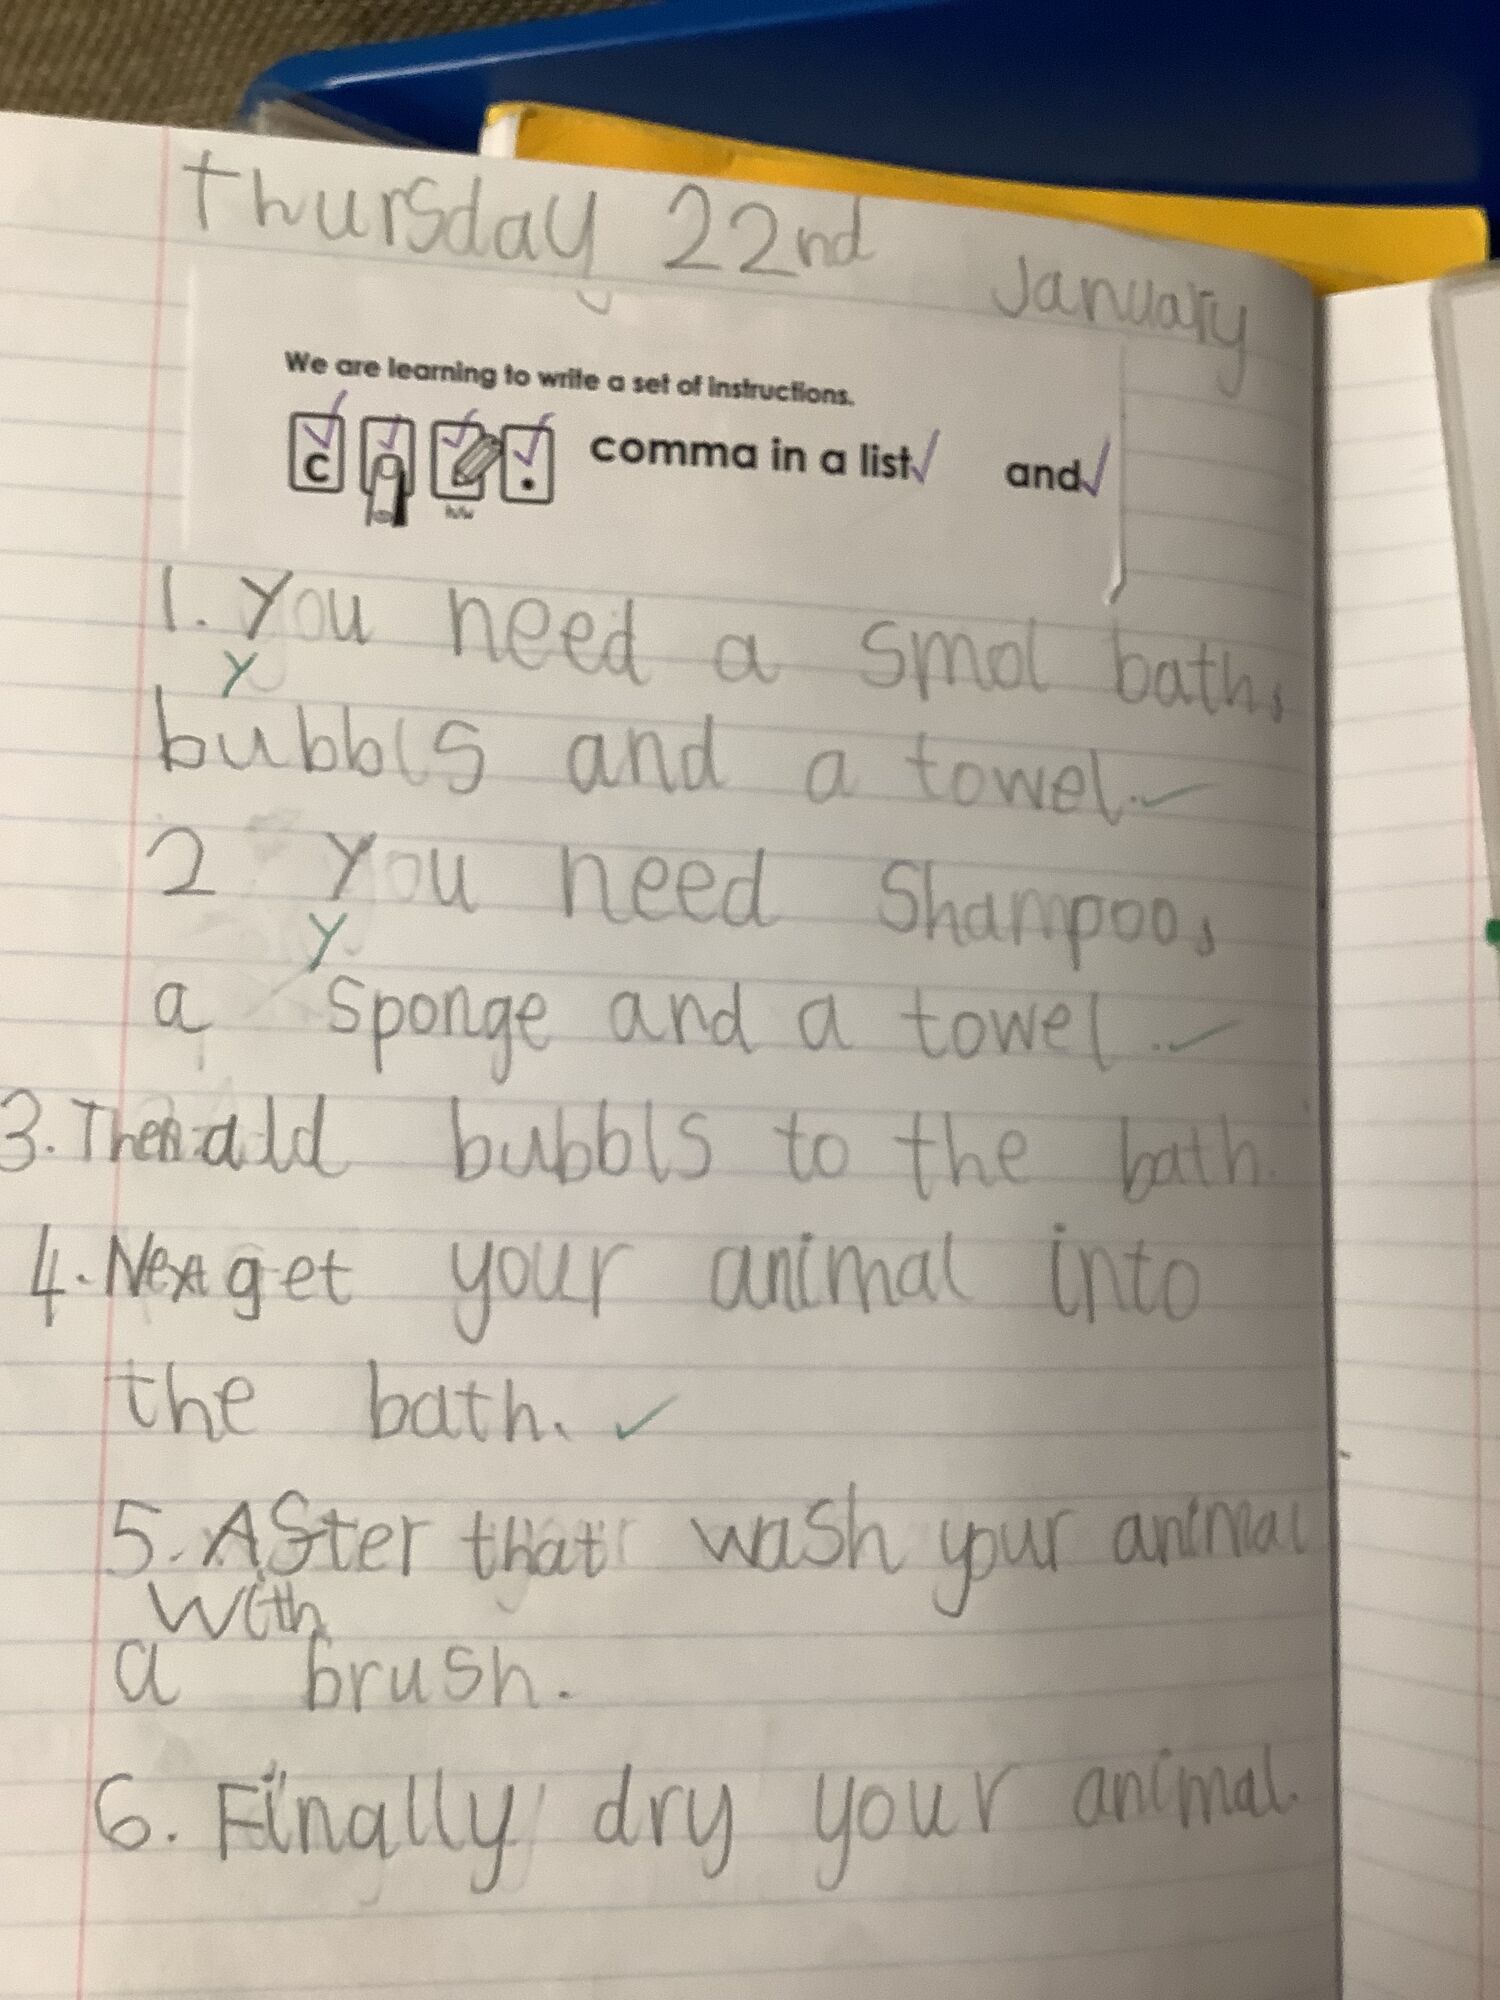 Thursday 22nd January
We are learning to write a set of instructions.
C . comma in a list and
1. You need a smol bath,
y
bubbls and a towel.
2 You need Shampoo,
y
a sponge and a towel.
3. Then add bubbls to the bath.
4. Next get your animal into
the bath.
5. After that wash your animal
with
a brush.
6. Finally dry your animal.